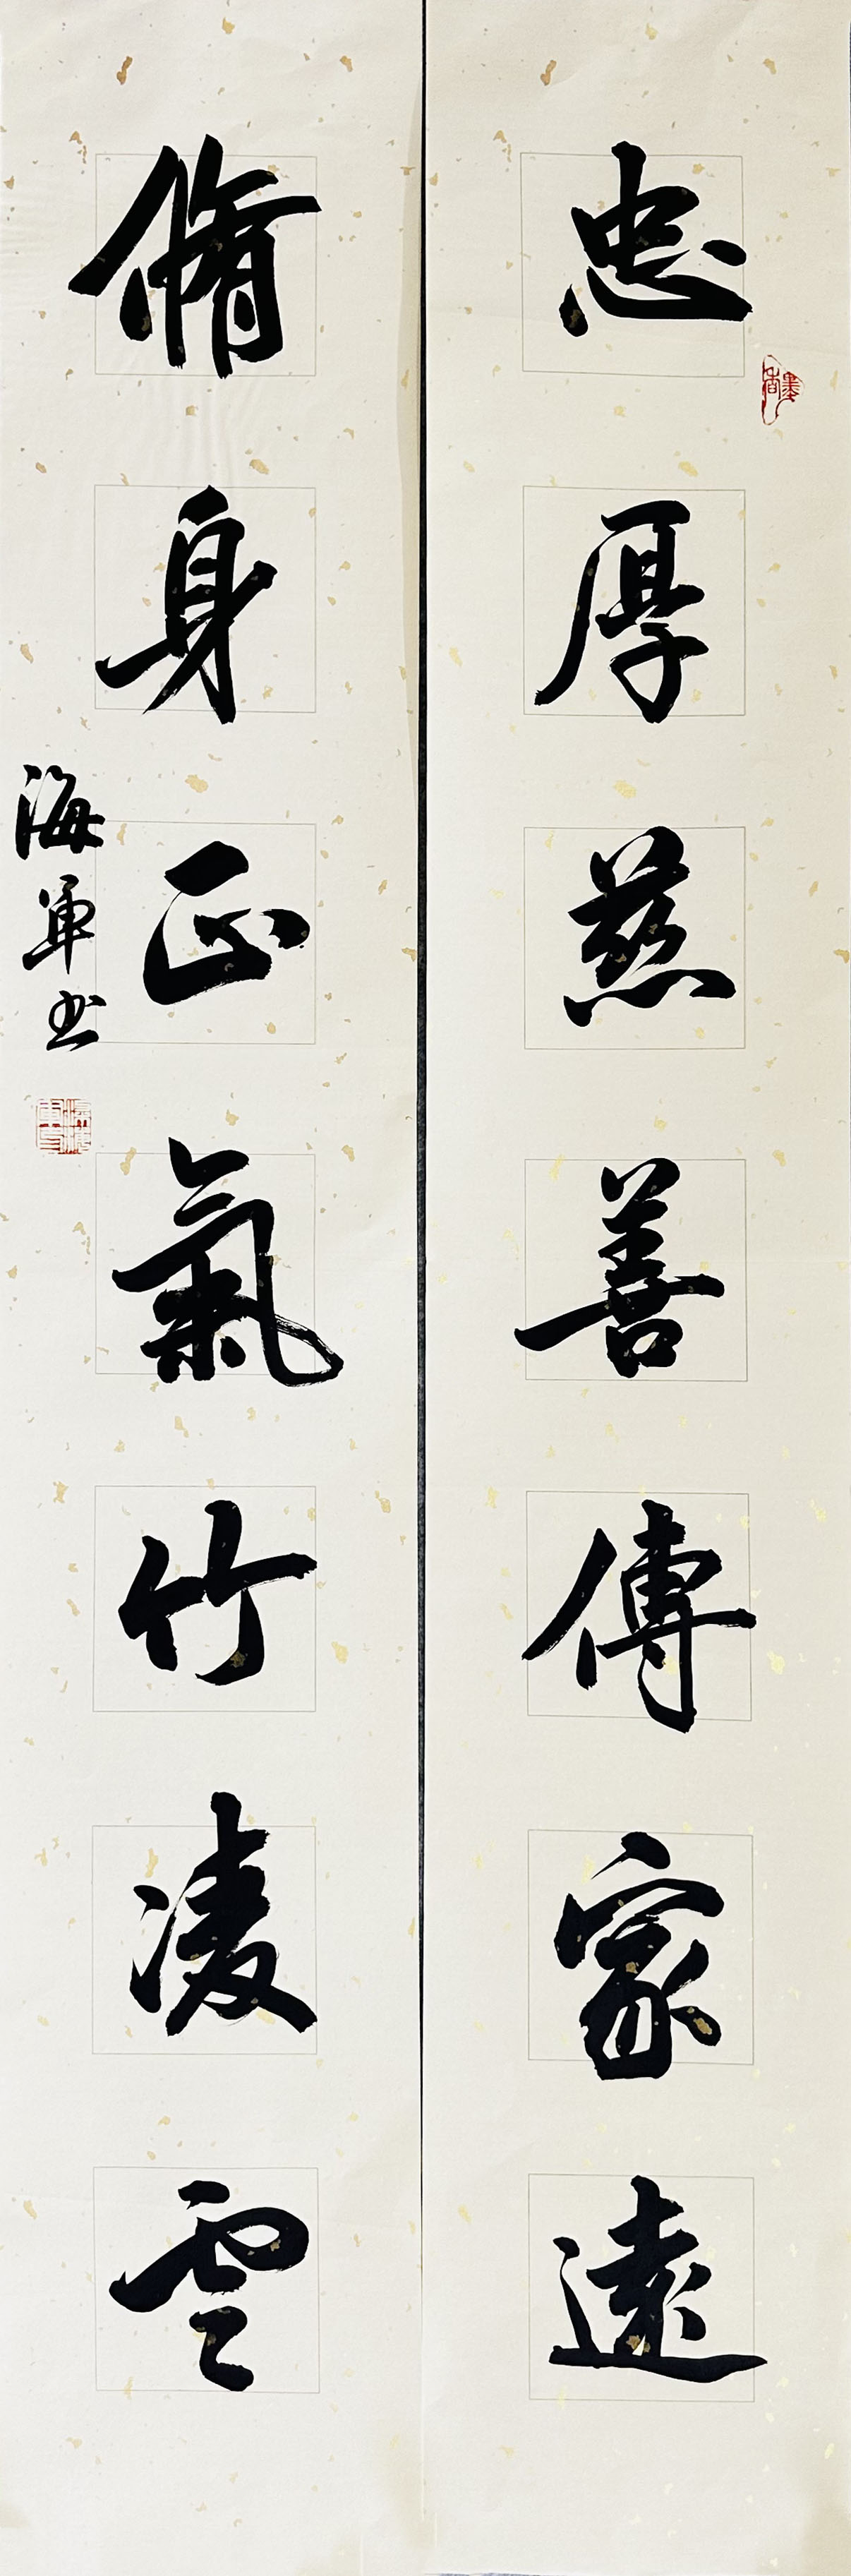 忠厚慈善傳家遠
脩身正氣竹凌雲
海軍书
墨香